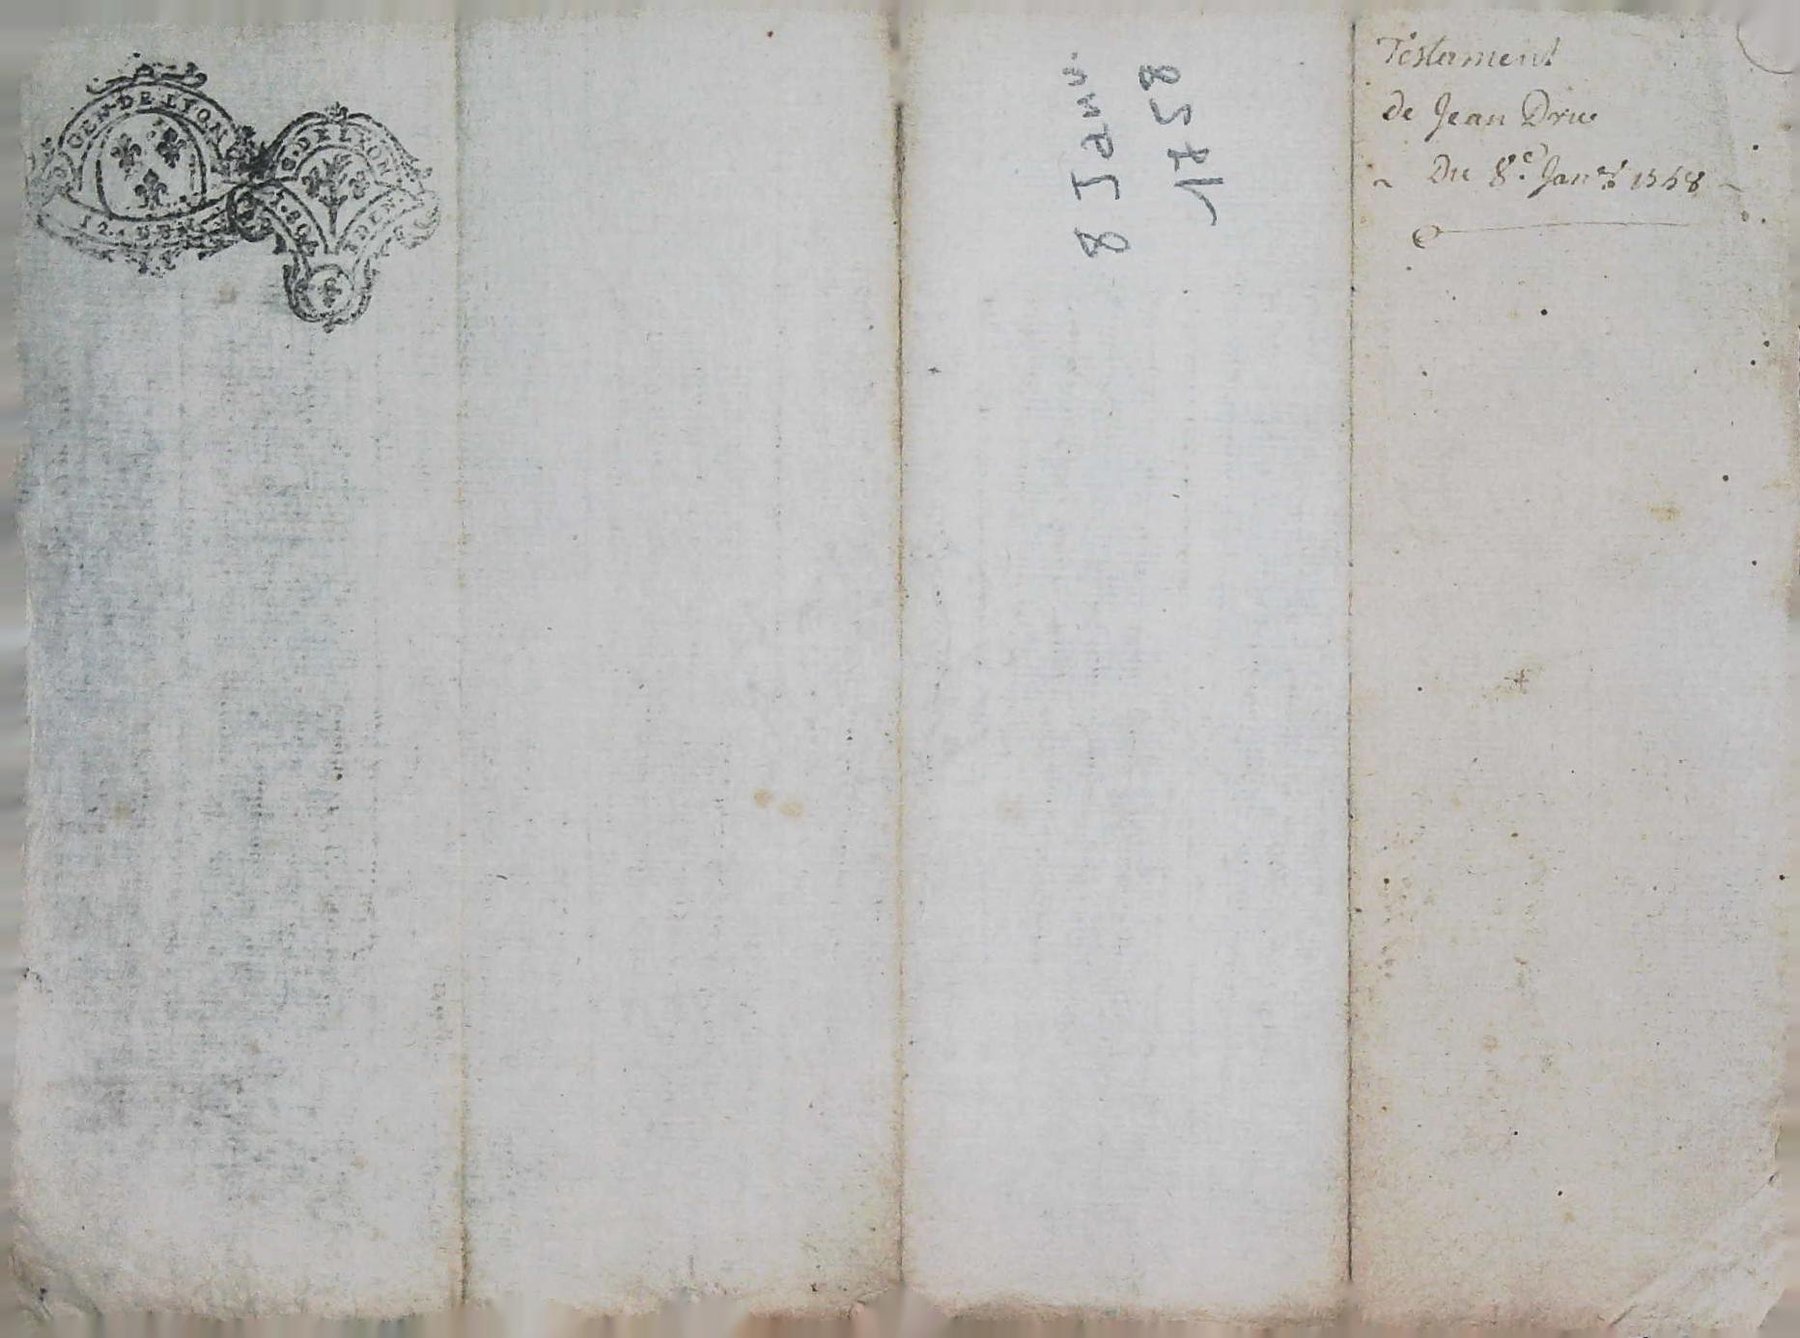 GEN·DE·LYON
G·DE LYON
8 Janv.
1758
Testament
de Jean Driu
Du 8.e Janer. 1758